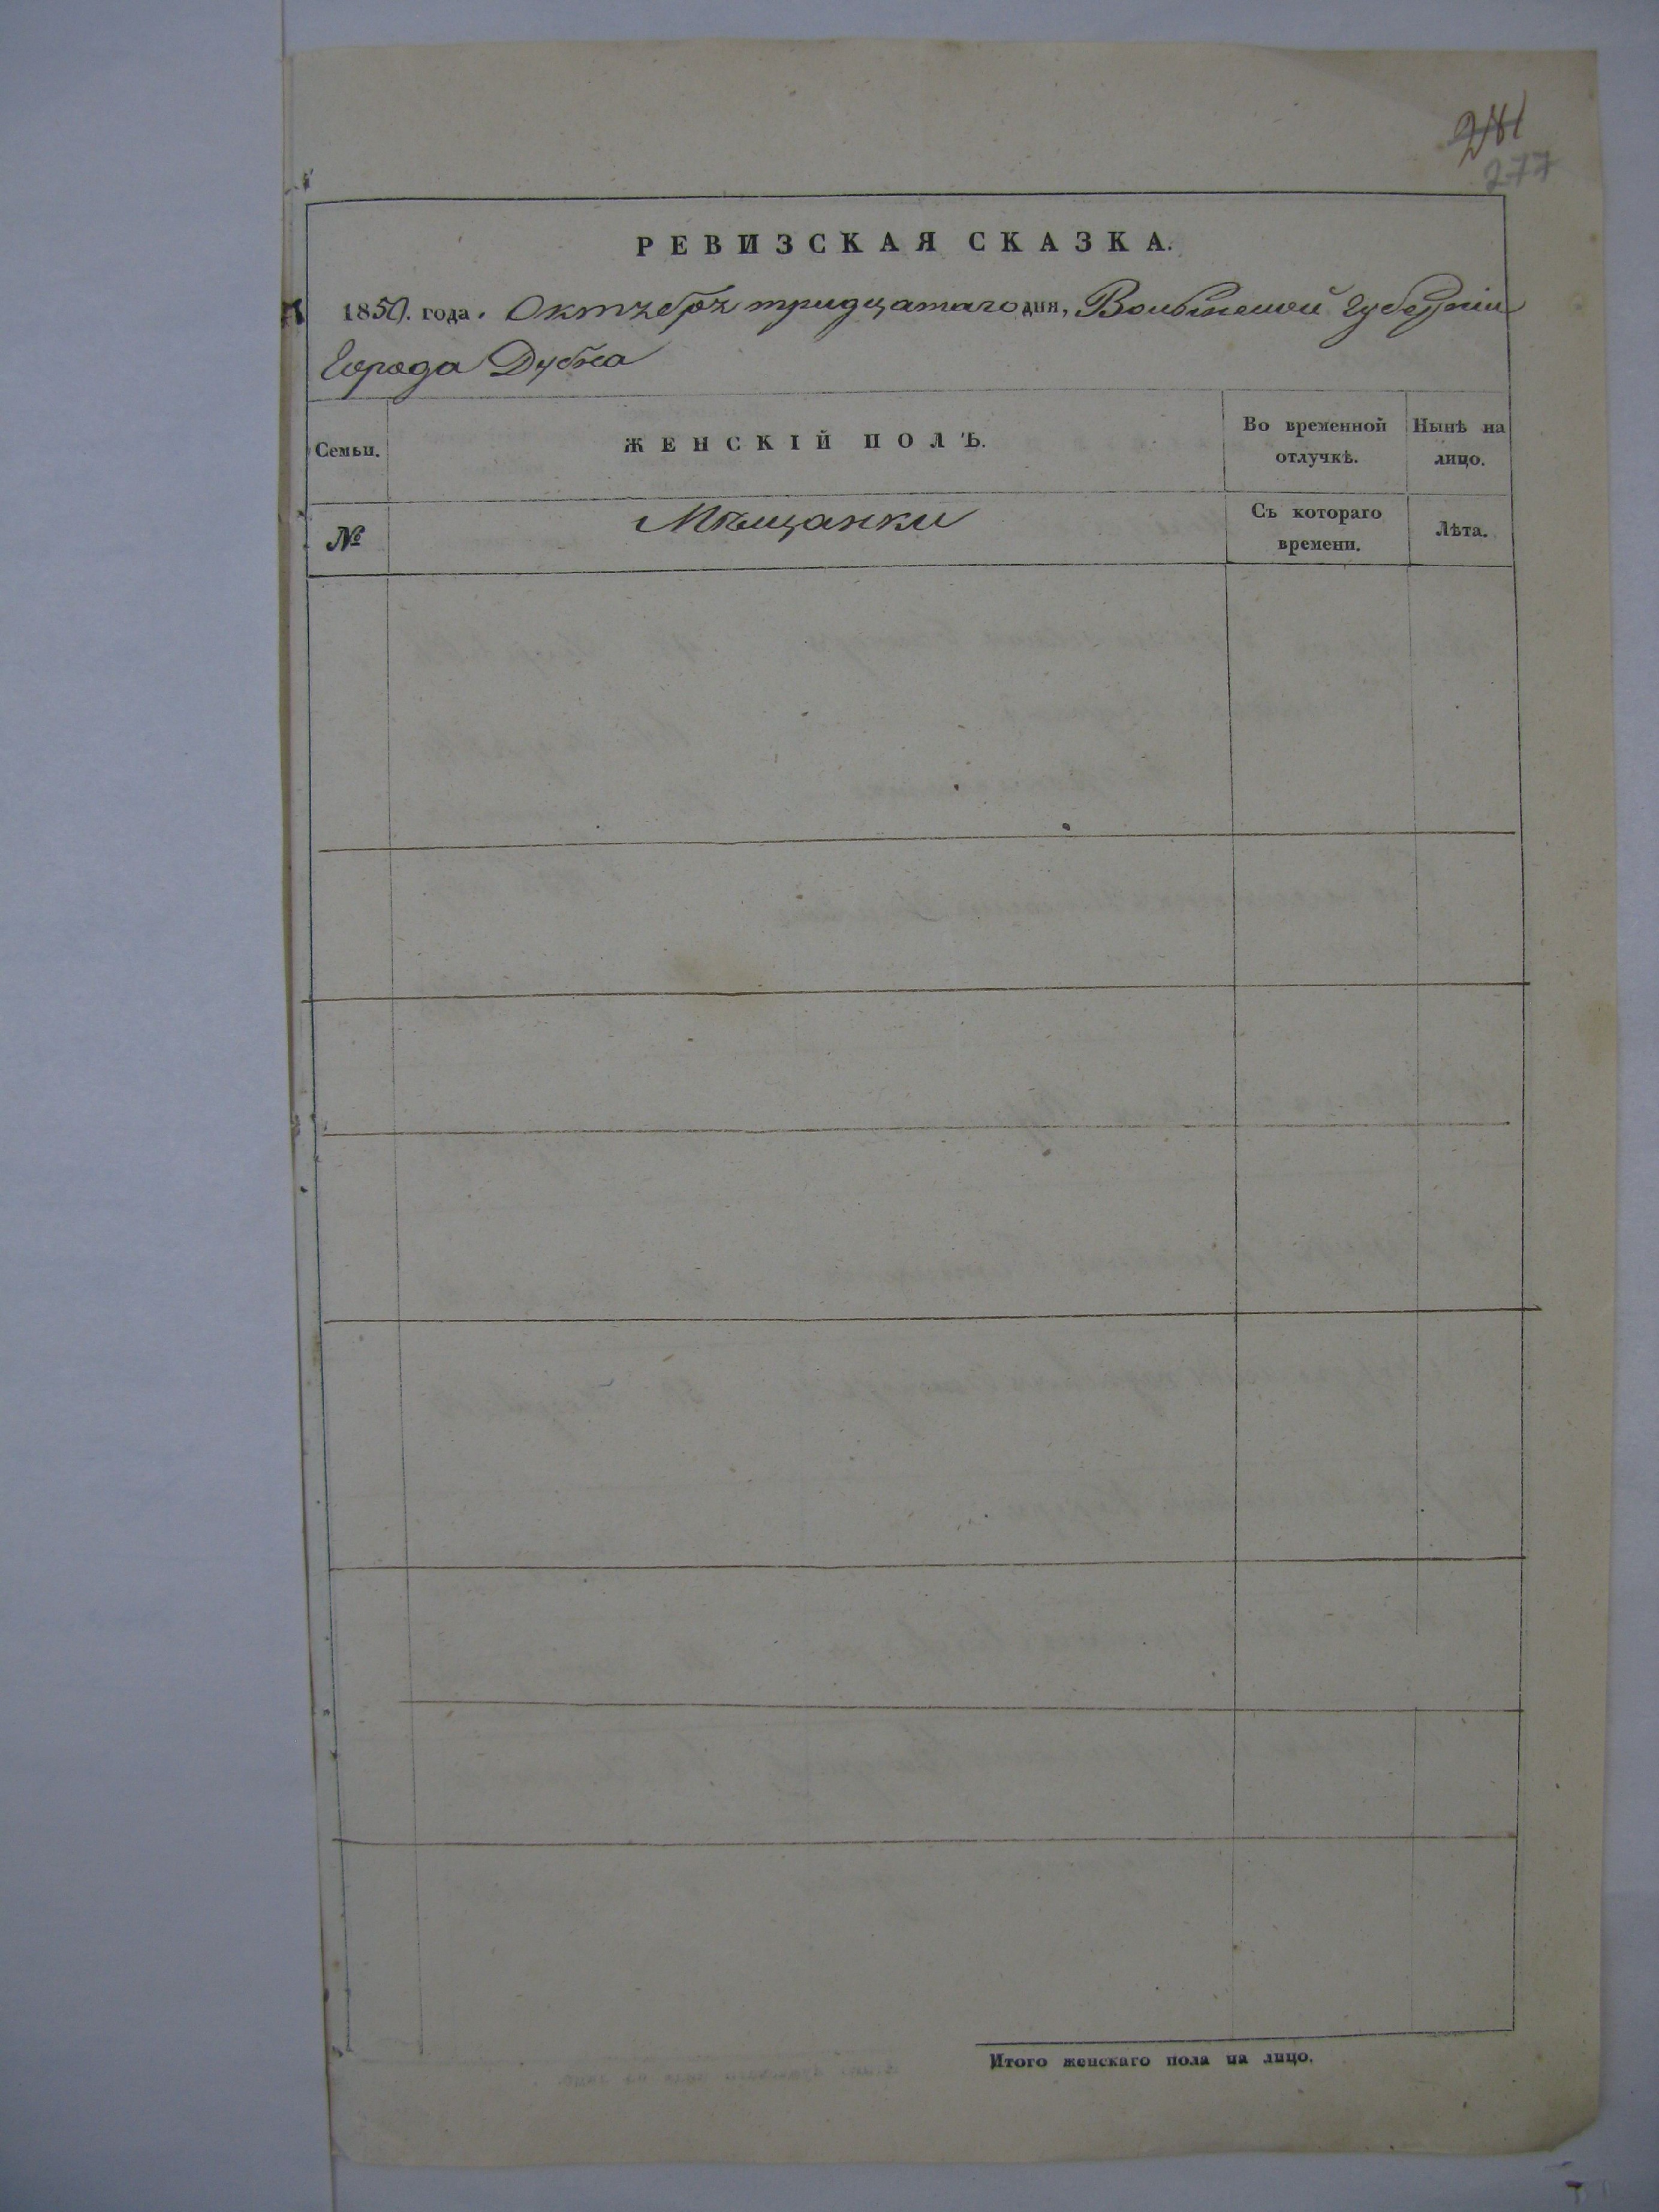 281
277
РЕВИЗСКАЯ СКАЗКА.
1850. года. Октября тридцатаго дня, Волынской губерніи
Города Дубна
Семьи.
ЖЕНСКІЙ ПОЛЪ.
Во временной отлучкѣ.
Нынѣ на лицо.
№
Мѣщанки
Съ котораго времени.
Лѣта.
Итого женскаго пола на лицо.